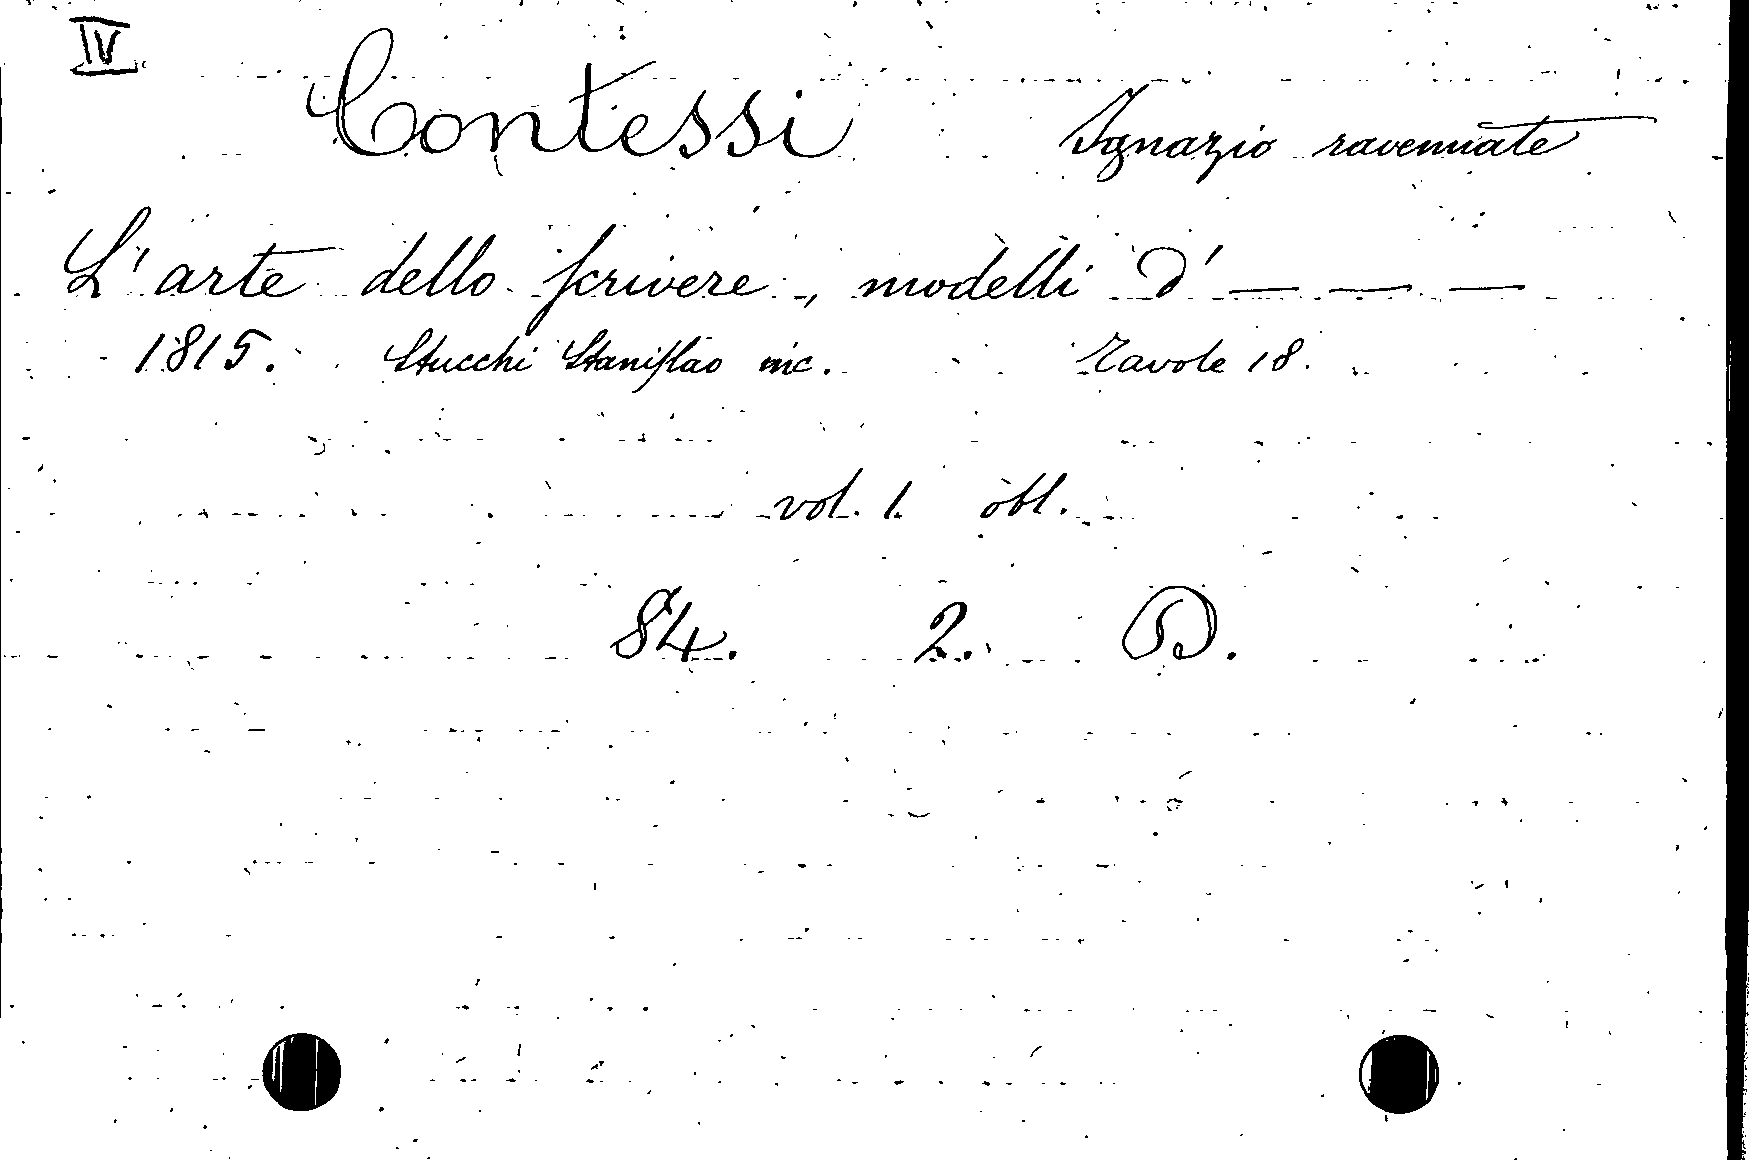 IV
Contessi Ignazio ravennate
L'arte dello scrivere, modelli d' — — —
1815. Stucchi Stanislao inc. Tavole 18.
vol. 1. obl.
84. 2. D.